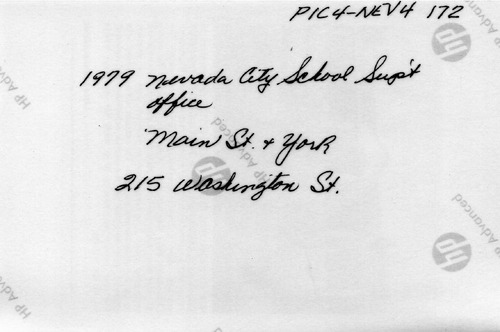 PIC4-NEV4 172
1979 Nevada City School Sup't
office
Main St. + York
215 Washington St.
HP Advanced
HP Advanced
HP Advanced
HP Advanced